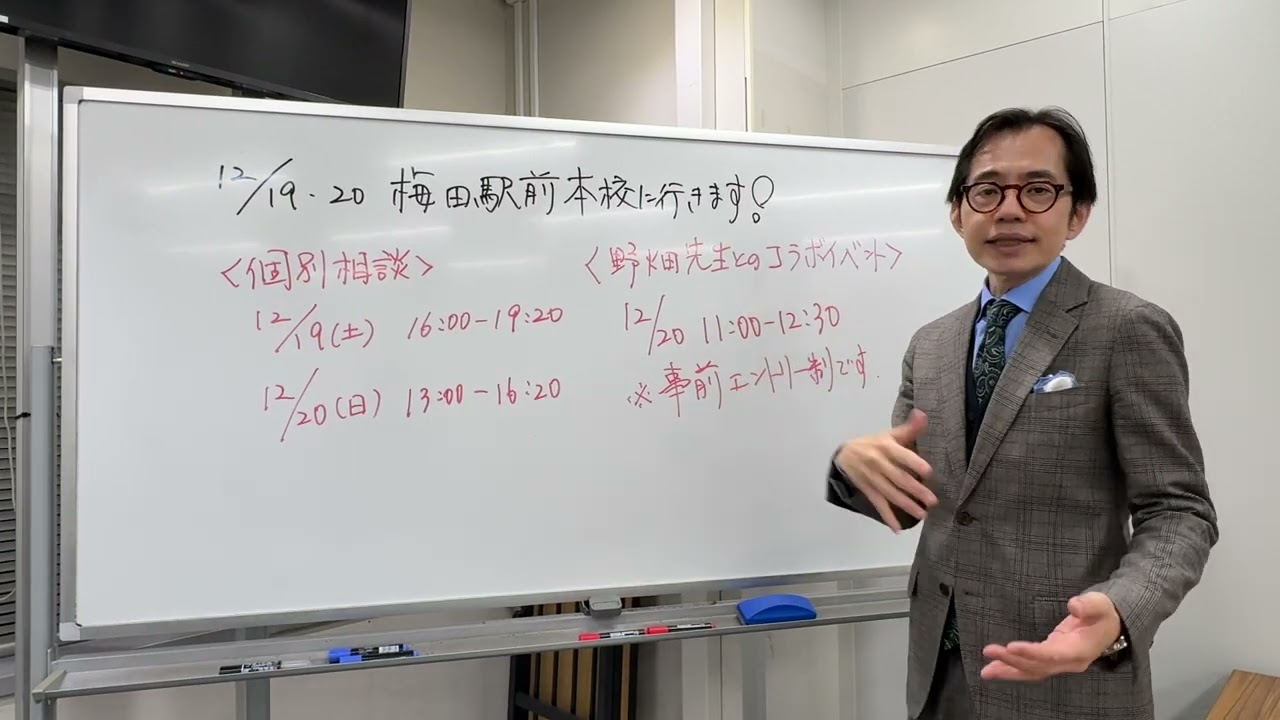 12/19・20 梅田駅前本校に行きます!
<個別相談>
12/19(土) 16:00-19:20
12/20(日) 13:00-16:20
<野畑先生とのコラボイベント>
12/20 11:00-12:30
※事前エントリー制です.